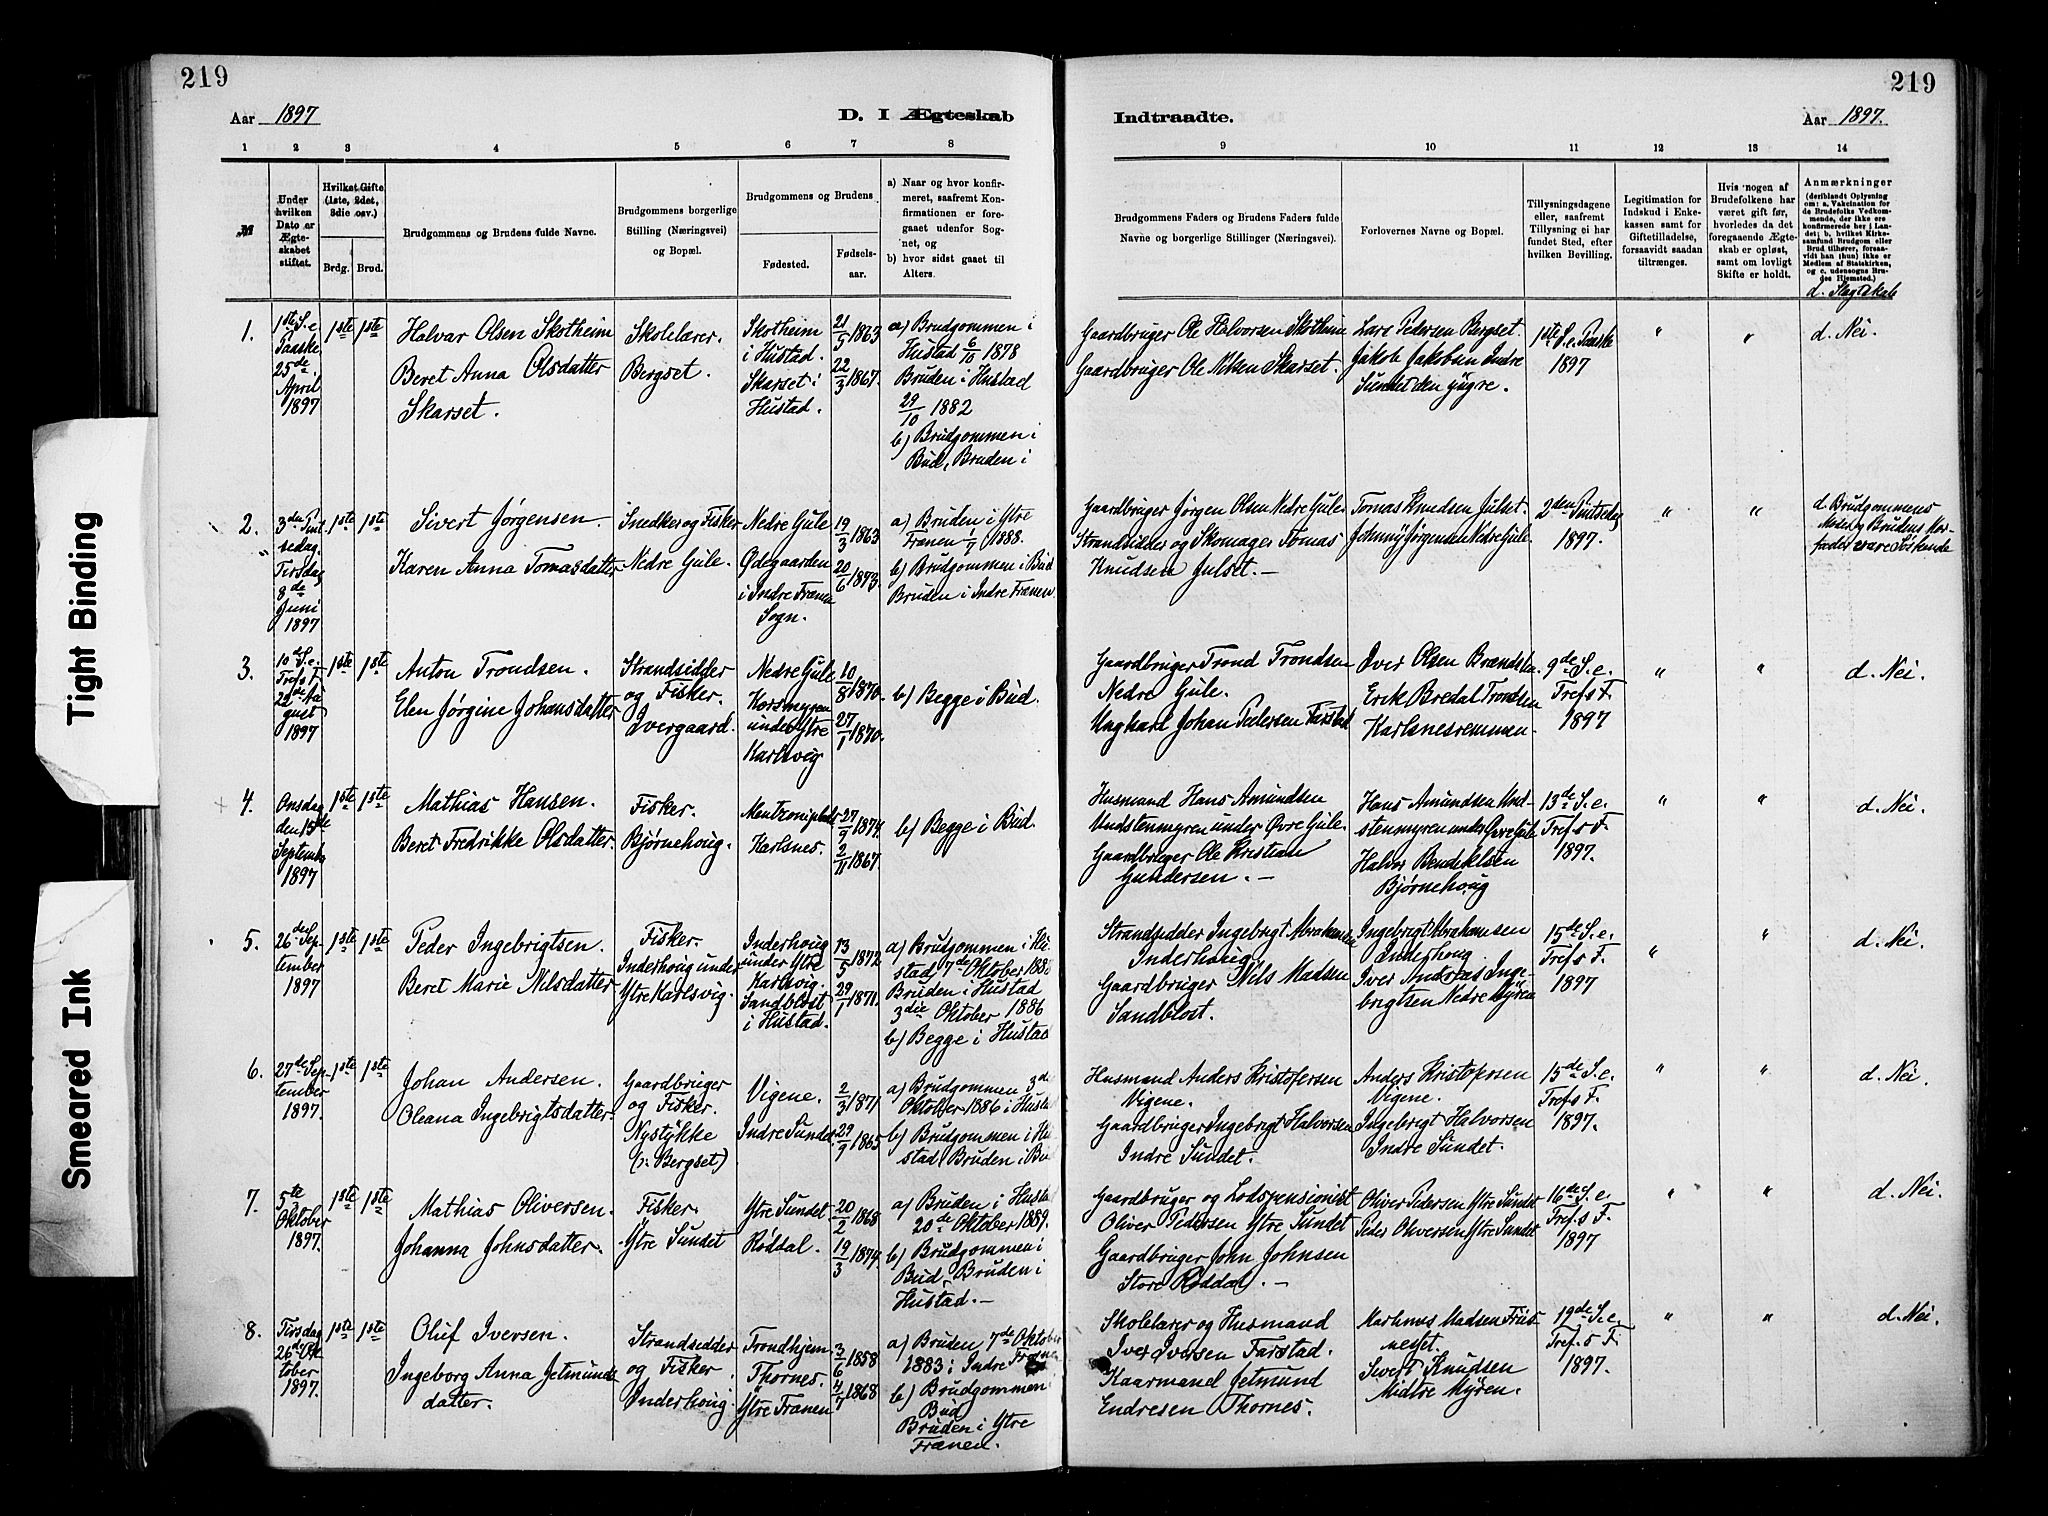 219
Aar 1897
D. I Ægteskab
1 2 3 4 5 6 7 8
№
Under hvilken Dato er Ægteskabet stiftet.
Hvilket Gifte (1ste, 2det, 3die osv.)
Brdg. Brud.
Brudgommens og Brudens fulde Navne.
Brudgommens borgerlige Stilling (Næringsvei) og Bopæl.
Brudgommens og Brudens
Fødested. Fødselsaar.
a) Naar og hvor konfirmeret, saafremt Konfirmationen er foregaaet udenfor Sognet, og
b) hvor sidst gaaet til Alters.
1.
1ste S. e. Paaske 25de April 1897
1ste 1ste
Halvar Olsen Skotheim
Beret Anna Olsdatter
Skarset.
Skolelærer.
Bergset.
Skotheim i Hustad.
Skarset i Hustad.
21/5 1863
22/3 1867.
a) Brudgommen i
Hustad 6/10 1878
Bruden i Hustad
29/10 1882
b) Brudgommen i
Bud, Bruden i
2.
3den Pintsedag. Tirsdag 8de Juni 1897
1ste 1ste
Sivert Jørgensen.
Karen Anna Tomasdatter
Snedker og Fisker
Nedre Gule.
Nedre Gule
Ødegaarden
i Indre Frænen
Sogn.
19/3 1863
20/6 1873.
a) Bruden i Ytre
Frænen 1888.
b) Brudgommen i Bud
Bruden i Indre Frænen.
3.
10de S. e. Tref. s F. 22de August 1897
1ste 1ste
Anton Trondsen.
Elen Jørgine Johansdatter
Strandsidder
og Fisker.
Ivergaard.
Nedre Gule
Korsmyren
under Ytre
Karlsvig
10/8 1870.
27/1 1870.
b) Begge i Bud.
4.
Onsdag den 15de Septemb. 1897
1ste 1ste
Mathias Hansen.
Beret Fredrikke Olsdatter.
Fisker.
Bjørnehoug.
Karlsnes.
27/9 1874.
2/11 1867.
b) Begge i Bud.
5.
26de September 1897
1ste 1ste
Peder Ingebrigtsen.
Beret Marie Nilsdatter
Fisker.
Inderhoug under
Ytre Karlsvig.
Inderhoug
under Ytre
Karlsvig.
Sandblost
i Hustad.
13/5 1872
29/1 1871.
a) Brudgommen i Hustad 7de Oktober
Bruden i Hustad
3die Oktober 1886
b) Begge i Hustad
6.
27de September 1897.
1ste 1ste
Johan Andersen.
Oleana Ingebrigtsdatter.
Gaardbruger
og Fisker.
Nystykke
(ɔ: Bergset)
Vigene.
Indre Sundet
2/3 1871
29/9 1865
a) Brudgommen 3die
Oktober 1886 i Hustad
b) Brudgommen i Hustad Bruden i Bud
7.
5te Oktober 1897.
1ste 1ste
Mathias Oliversen.
Johanna Johnsdatter.
Fisker.
Ytre Sundet
Ytre Sundet
Røddal.
20/2 1868
19/3 1874.
a) Bruden i Hustad
20de Oktober 1889.
b) Brudgommen i
Bud, Bruden i
Hustad. —
8.
Tirsdag 26de Oktober 1897.
1ste 1ste
Oluf Iversen.
Ingeborg Anna Jetmundsdatter.
Strandsidder
og Fisker
Inderhoug.
Trondhjem.
Thornes.
Ytre Frænen
3/6 1858
4/7 1868
a) Bruden 7de Oktober
1883 i Indre Frænen
b) Brudgommen i
Bud
Bruden i Ytre
Frænen.
219
Indtraadte.
Aar 1897.
9 10 11 12 13 14
Brudgommens Faders og Brudens Faders fulde Navne og borgerlige Stillinger (Næringsvei).
Forlovernes Navne og Bopæl.
Tillysningsdagene eller, saafremt Tillysning ei har fundet Sted, efter hvilken Bevilling.
Legitimation for Indskud i Enkekassen samt for Giftetilladelse, forsaavidt saadan tiltrænges.
Hvis nogen af Brudefolkene har været gift før, hvorledes da det foregaaende Ægteskab er opløst, samt om lovligt Skifte er holdt.
Anmærkninger (deriblandt Oplysning om: a. Vakcination for de Brudefolks Vedkommende, der ikke ere konfirmerede her i Landet; b. hvilket Kirkesamfund Brudgom eller Brud tilhører, forsaavidt han (hun) ikke er Medlem af Statskirken, og c. udensogns Brudes Hjemsted.)
d. Slægtskab
Gaardbruger Ole Halvorsen Skotheim
Gaardbruger Ole Nilsen Skarset.
Lars Pedersen Bergset.
Jakob Jakobsen Indre
Sundet den yngre.
1ste S. e. Paaske
1897
" "
d. Nei.
Gaardbruger Jørgen Olsen Nedre Gule.
Strandsidder og Skomager Tomas
Knudsen Julset. —
Tomas Knudsen Julset.
Johnny Jørgensen Nedre Gule.
2den Pintsedag
1897.
" "
d. Brudgommens
Moder og Brudens Morfader vare Søskende
Gaardbruger Trond Trondsen
Nedre Gule.
Ungkarl Johan Pedersen Farstad
Iver Olsen
Erik Bredal Trondsen
Karlsnesremmen.
9de S. e.
Tref. s F.
1897
" "
d. Nei.
Husmand Hans Amundsen
Undstenmyren under Øvre Gule.
Gaardbruger Ole Kristian
Gundersen. —
Hans Amundsen Undstenmyren under Øvre Gule
Halvor Bendiktsen
Bjørnehoug
13de S. e.
Tref. s F.
1897.
" "
d. Nei.
Strandsidder Ingebrigt Abrahamsen
Inderhoug
Gaardbruger Nils Madsen
Sandblost.
Ingebrigt Abrahamsen
Inderhoug
Iver Andreas Ingebrigtsen Nedre Myren
15de S. e.
Tref. s F.
1897
" "
d. Nei.
Husmand Anders Kristofersen
Vigene.
Gaardbruger Ingebrigt Halvorsen
Indre Sundet.
Anders Kristofersen
Vigene.
Ingebrigt Halvorsen
Indre Sundet.
15de S. e.
Tref. s F.
1897.
" "
d. Nei.
Gaardbruger og Lodspensionist
Oliver Pedersen Ytre Sundet
Gaardbruger John Johnsen
Store Røddal. —
Oliver Pedersen Ytre Sundet
Peder Oliversen Ytre Sundet
16de S. e.
Tref. s F.
1897
" "
d. Nei.
Skolelærer og Husmand
Iver Iversen Farstad.
Kaarmand Jetmund
Endresen Thornes.
Markus Madsen
Sivert Knudsen
Midtre Myren.
19de S. e.
Tref. s F.
1897.
" "
d. Nei.
Tight Binding
Smeared Ink